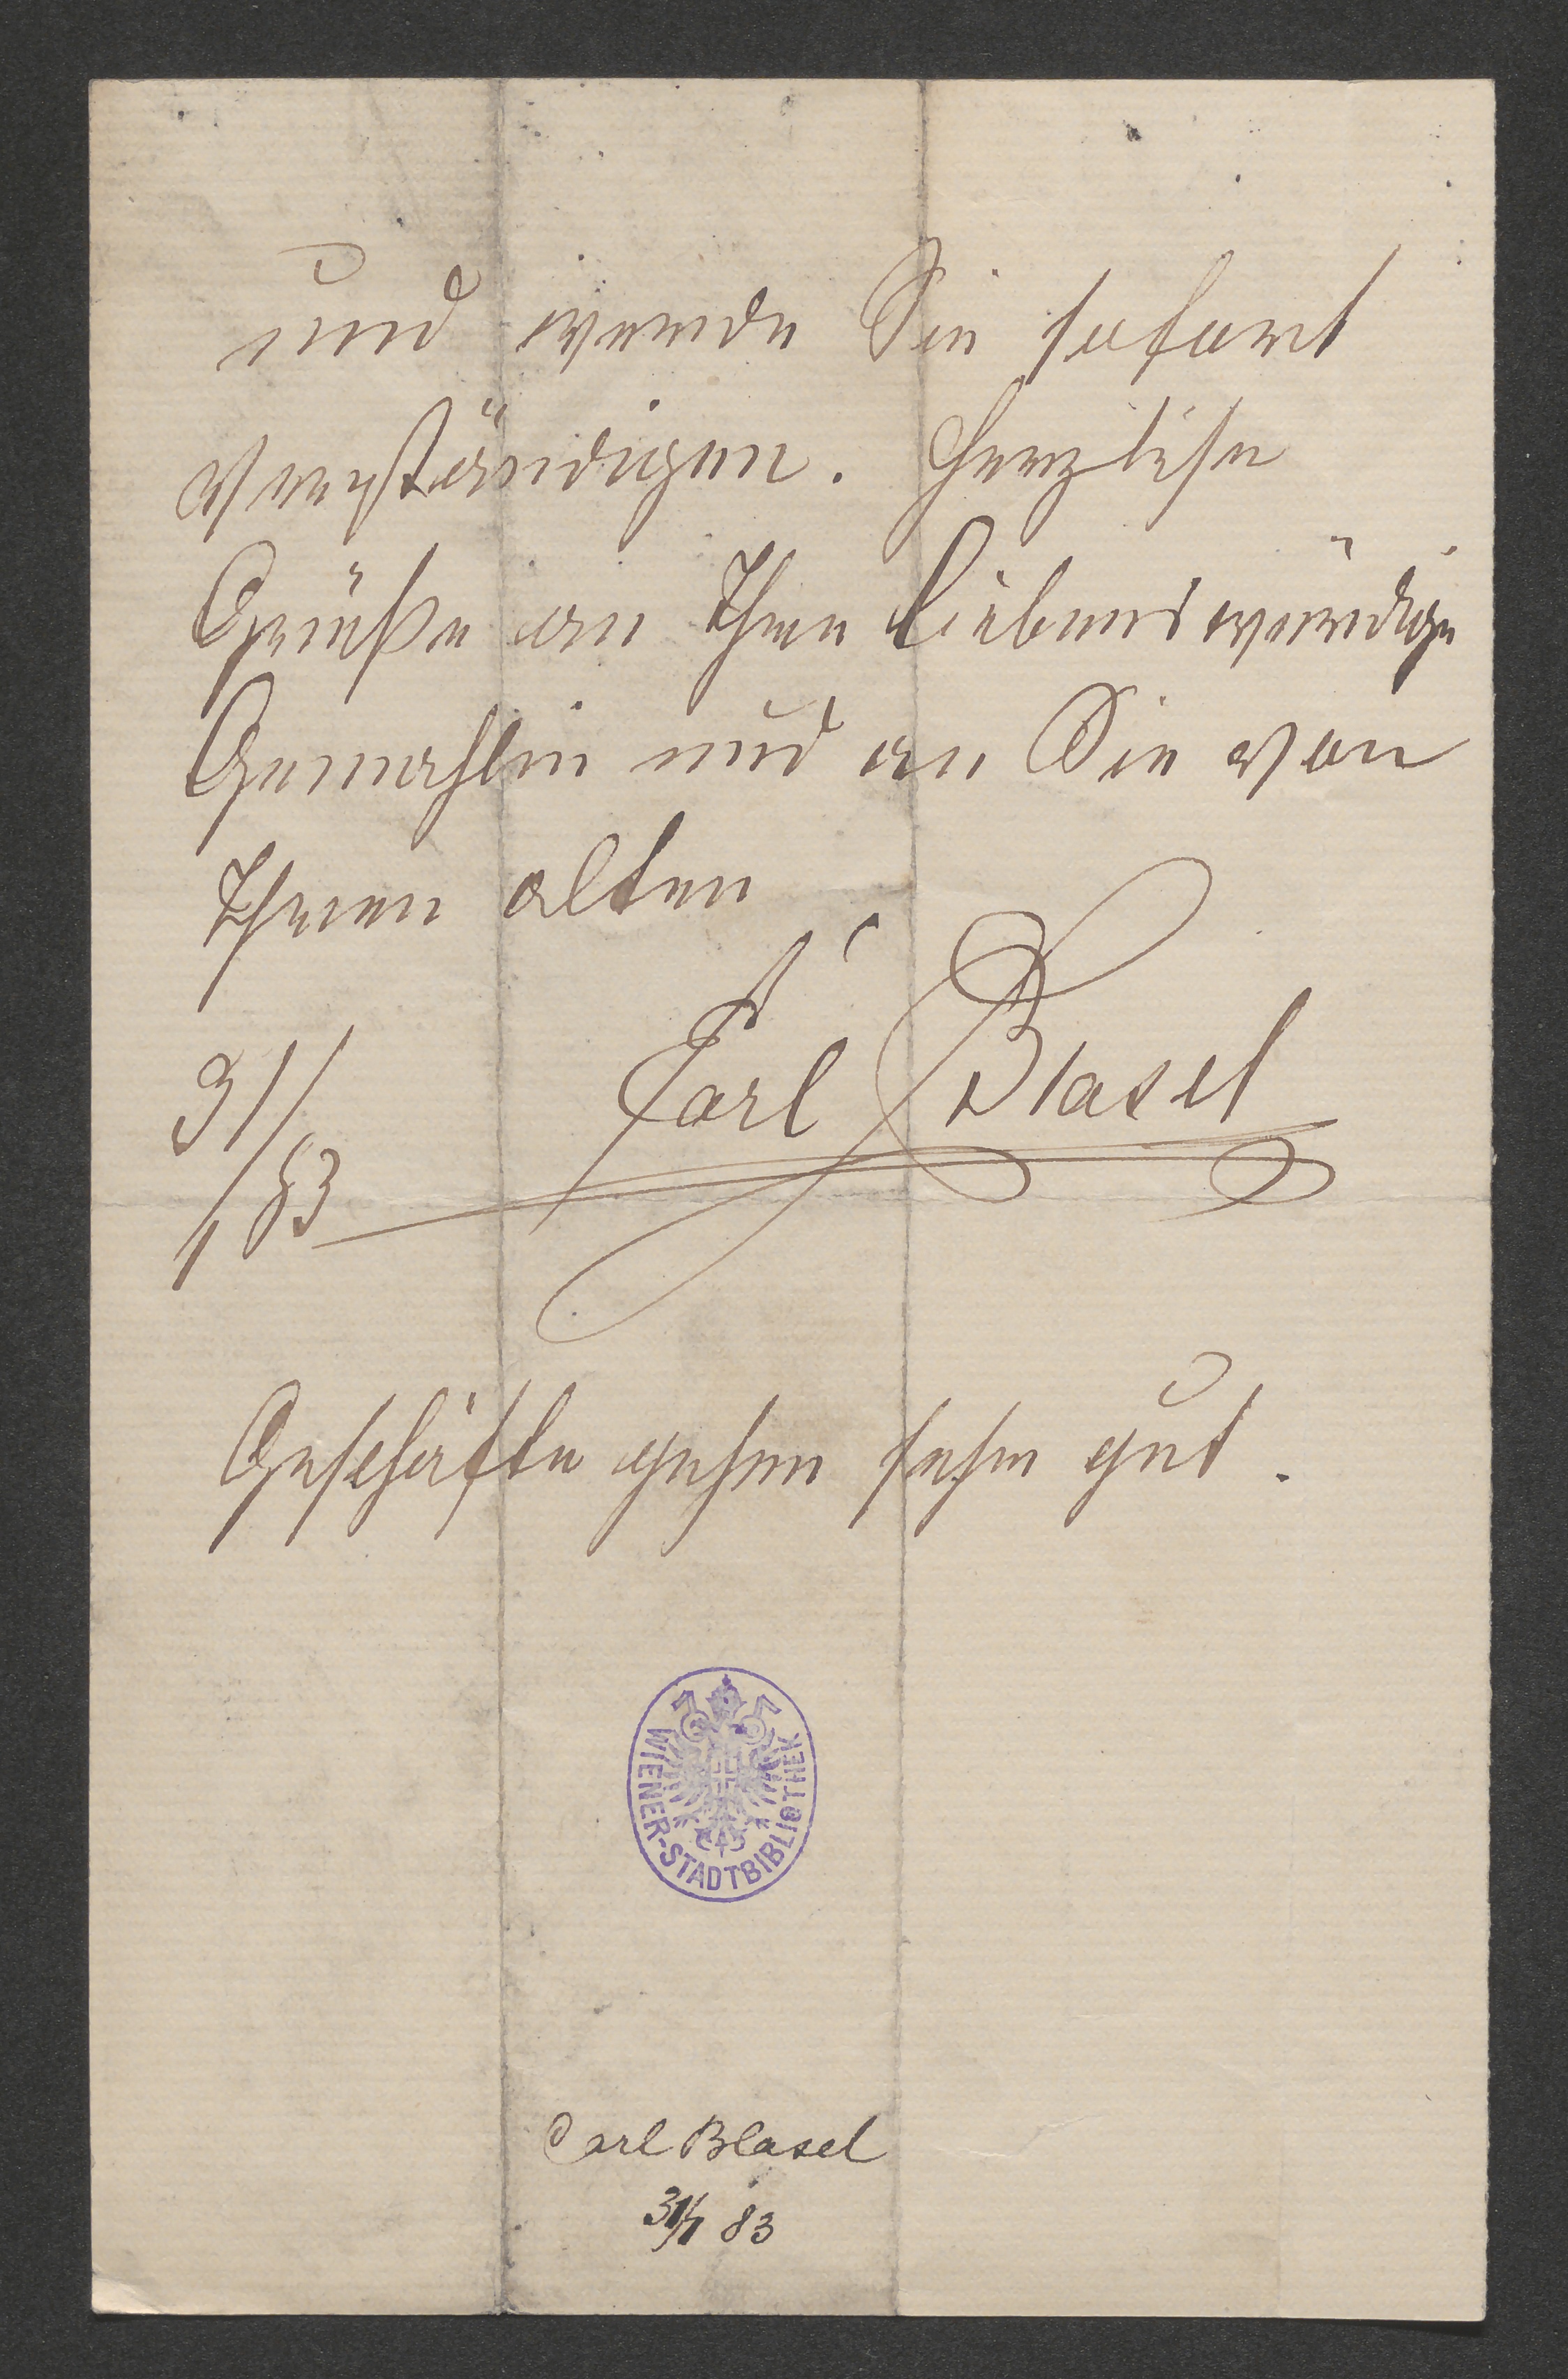 und werde Sie sofort
verständigen. Herzliche
Grüße an Ihre liebenswürdige
Gemahlin und an Sie von
Ihrem alten
Carl Blasel
31/
1/83
Geschäfte gehen sehr gut.
WIENER-STADTBIBLIOTHEK
Carl Blasel
31/1 83